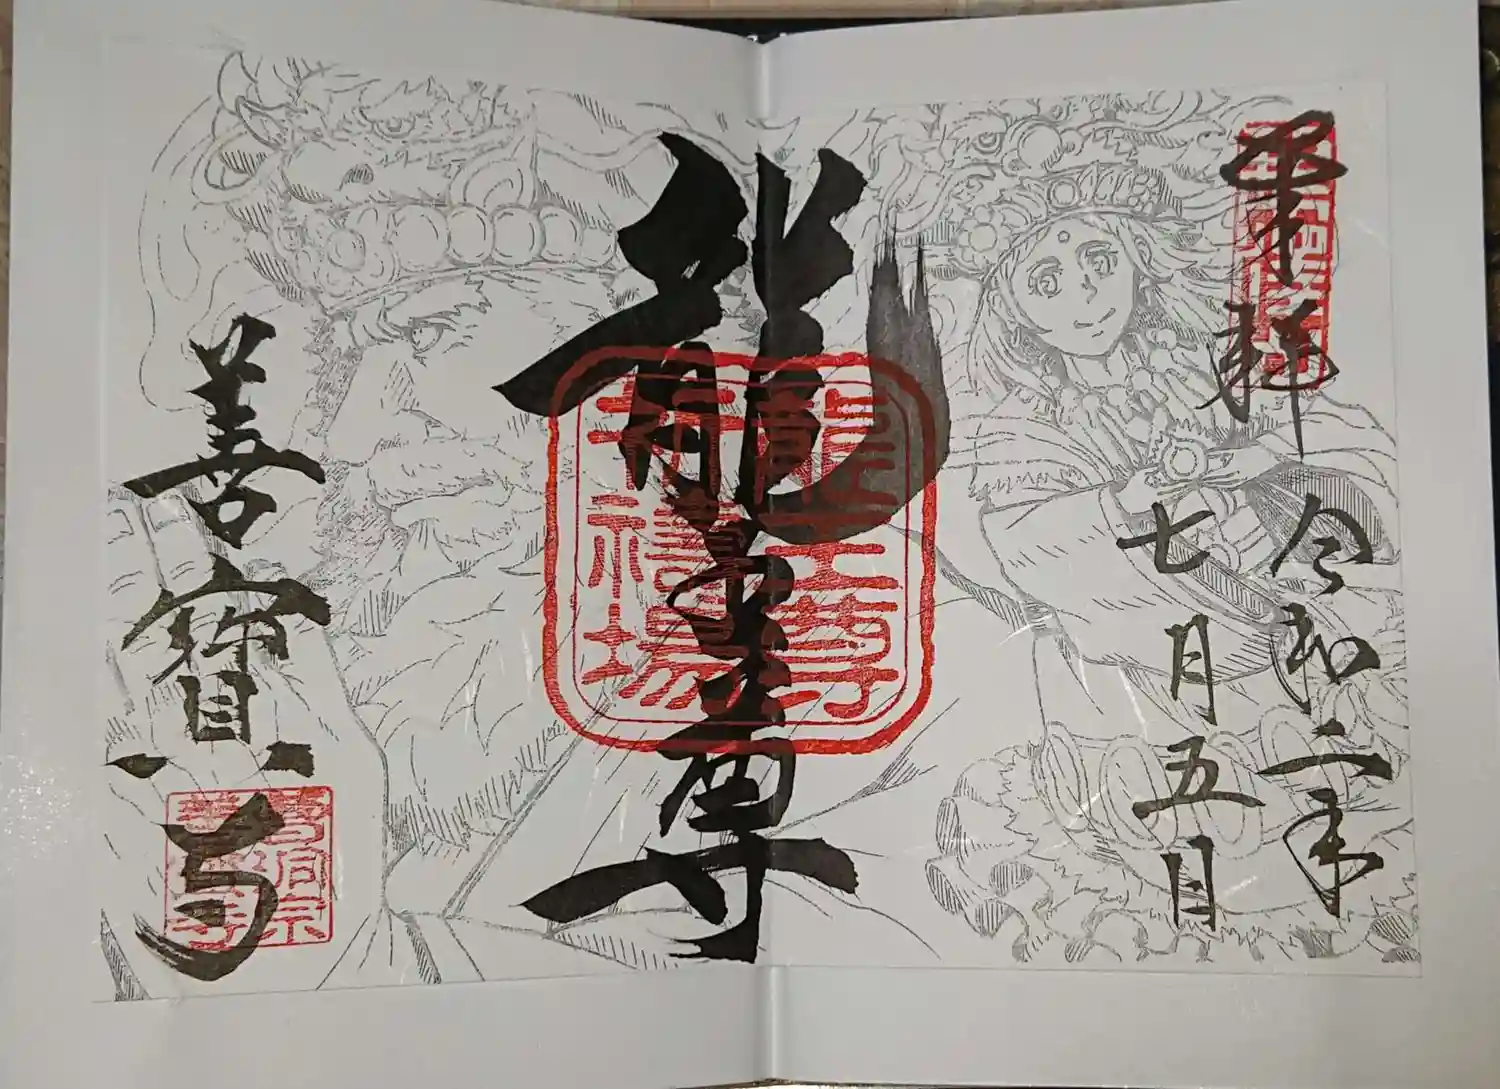 奉拝
令和二年
七月五日
龍王尊
龍王尊
祈禱場
善寳寺
曹洞宗
善寳寺